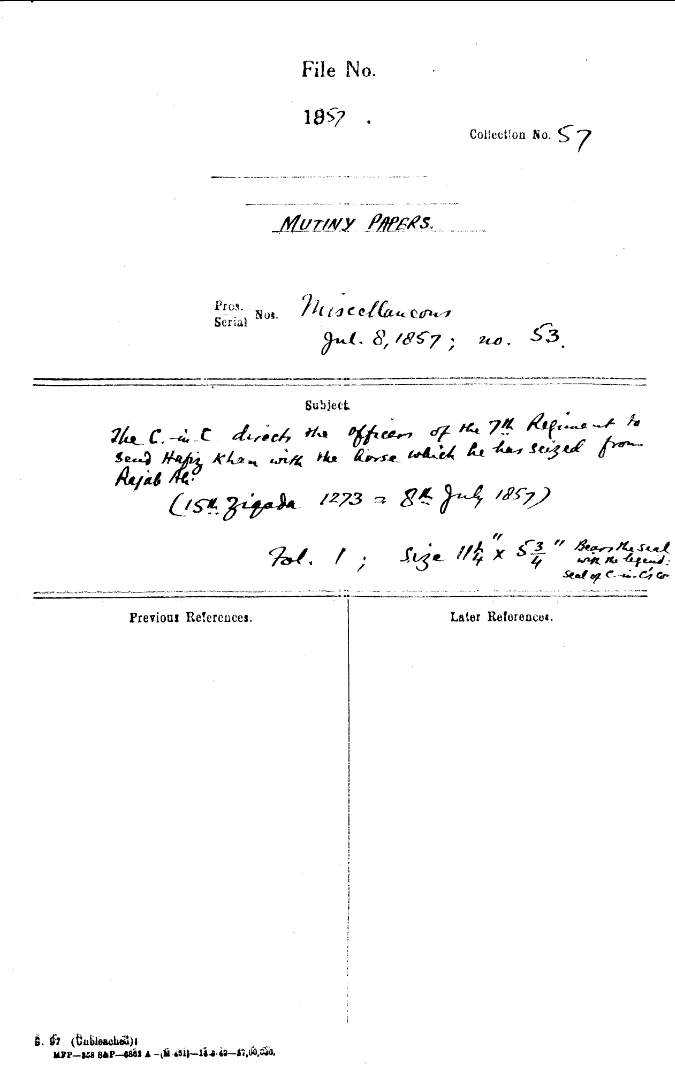 File No.
1857 .
Collection No. 57
MUTINY PAPERS.
Pros.
Serial Nos. Miscellaneous
Jul. 8, 1857; no. 53.
Subject
The C.-in-C directs the officers of the 7th Regiment to
send Hafiz Khan with the horse which he has seized from
Rajab Ali.
(15th Ziqada 1273 = 8th July 1857)
Fol. 1; Size 11¼" x 5¾" Bears the seal
with the legend:
seal of C.-in-C's
Previous References.
Later References.
S. 97 (Unbleached)